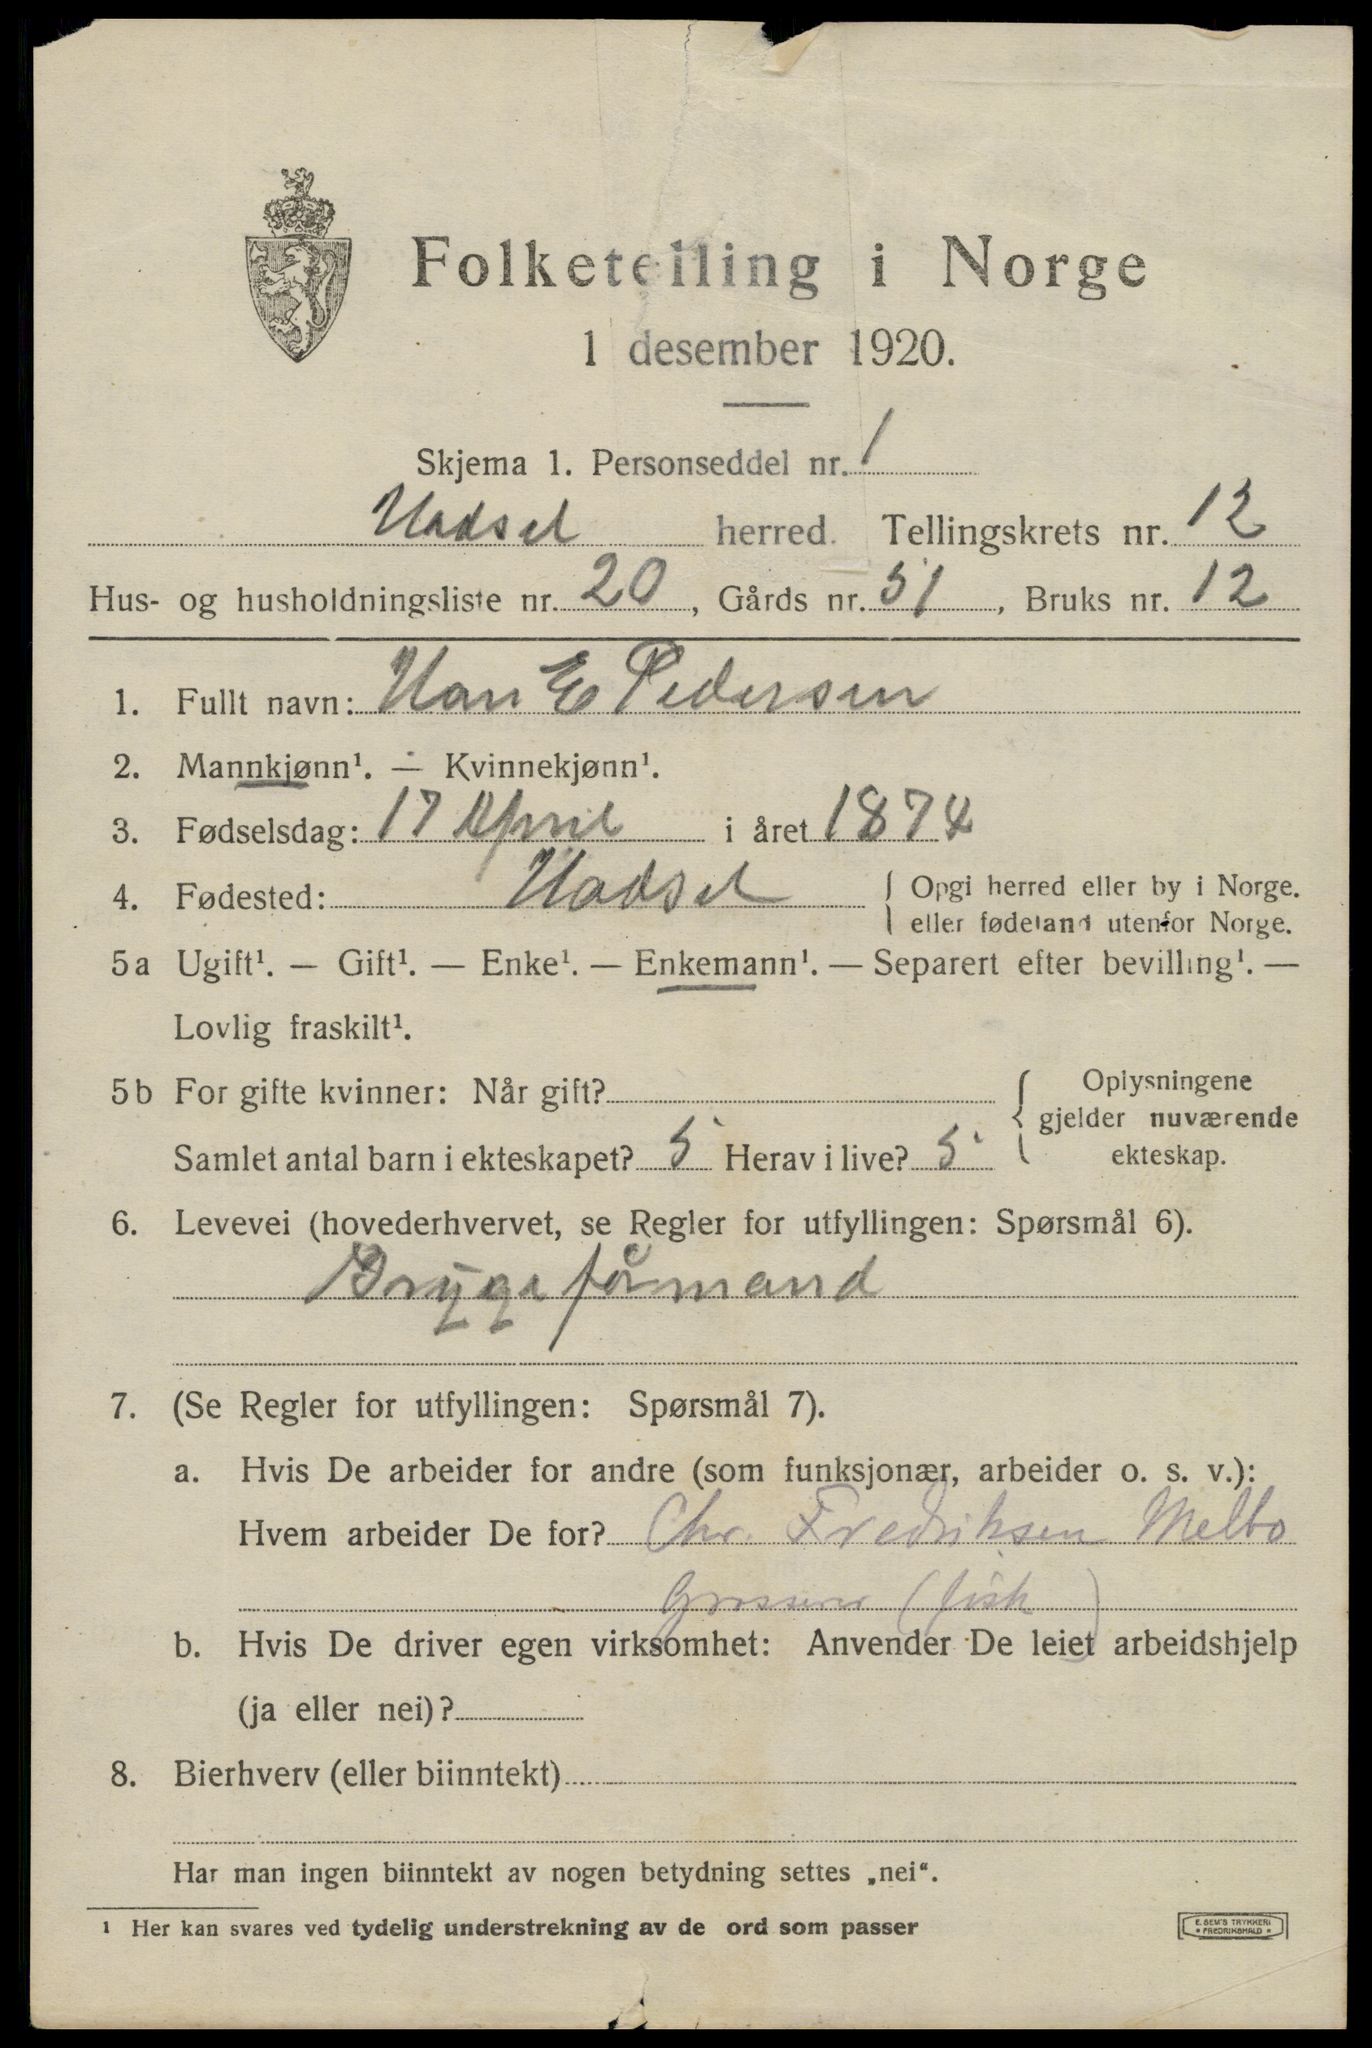 Folketelling i Norge
1 desember 1920.
Skjema 1. Personseddel nr. 1
Hadsel herred. Tellingskrets nr. 12
Hus- og husholdningsliste nr. 20, Gårds nr. 51, Bruks nr. 12
1. Fullt navn: Han E Pedersen
2. Mannkjønn¹. — Kvinnekjønn¹.
3. Fødselsdag: 17 April i året 1874
4. Fødested: Hadsel { Opgi herred eller by i Norge.
eller fødeland utenfor Norge.
5a Ugift¹. — Gift¹. — Enke¹. — Enkemann¹. — Separert efter bevilling¹. —
Lovlig fraskilt¹.
5b For gifte kvinner: Når gift? { Oplysningene
gjelder nuværende
Samlet antal barn i ekteskapet? 5 Herav i live? 5 ekteskap.
6. Levevei (hovederhvervet, se Regler for utfyllingen: Spørsmål 6).
Bryggeformand
7. (Se Regler for utfyllingen: Spørsmål 7).
a. Hvis De arbeider for andre (som funksjonær, arbeider o. s. v.):
Hvem arbeider De for? Chr. Fredriksen Melbo
Grosserer (fisk)
b. Hvis De driver egen virksomhet: Anvender De leiet arbeidshjelp
(ja eller nei)?
8. Bierhverv (eller biinntekt)
Har man ingen biinntekt av nogen betydning settes „nei“.
¹ Her kan svares ved tydelig understrekning av de ord som passer
E. SEM'S TRYKKERI
* FREDRIKSHALD *